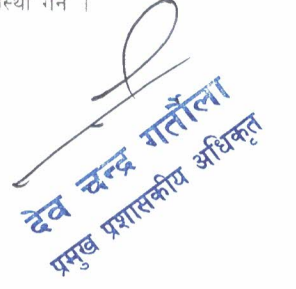 गर्ने ।
देव चन्द्र गर्तौला
प्रमुख प्रशासकीय अधिकृत